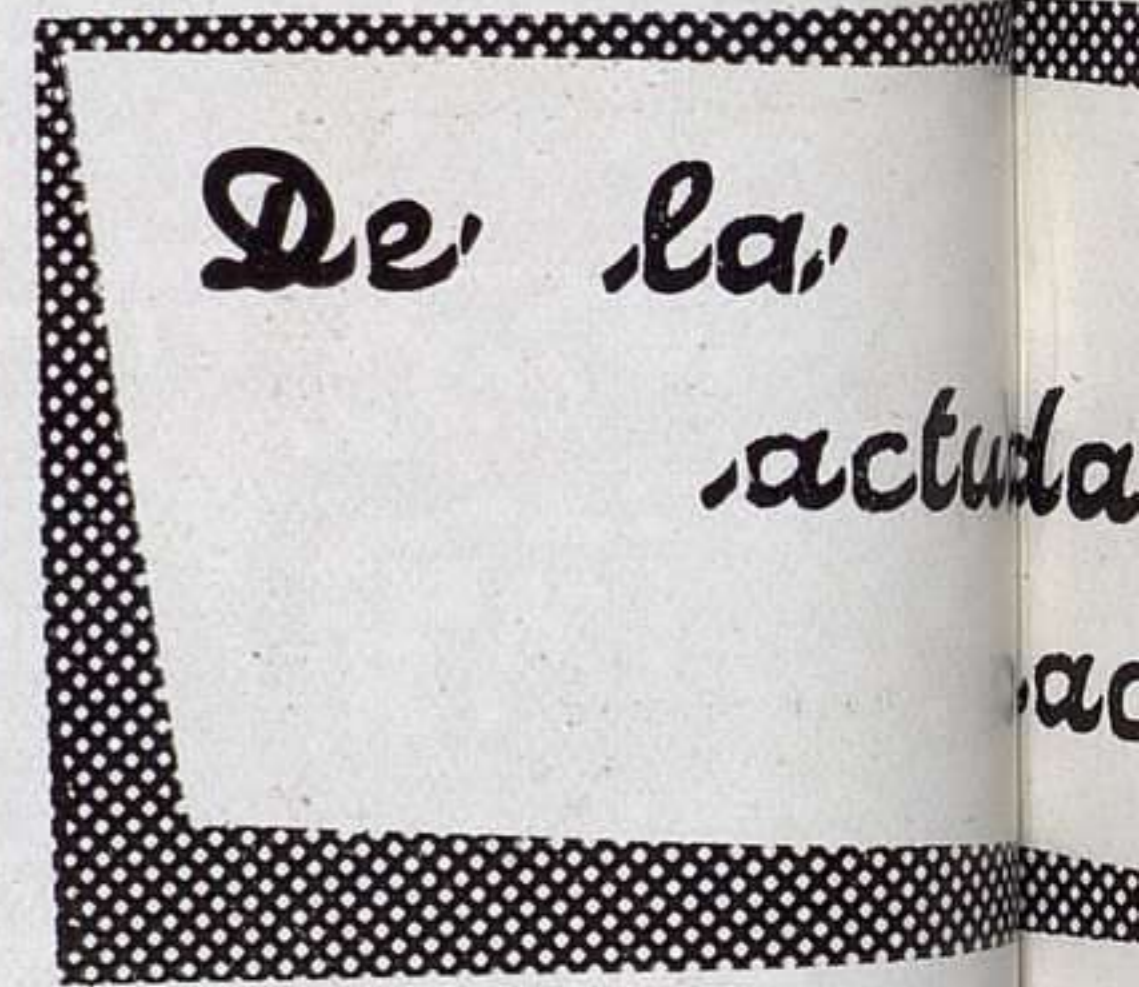 De la
actuda
ac